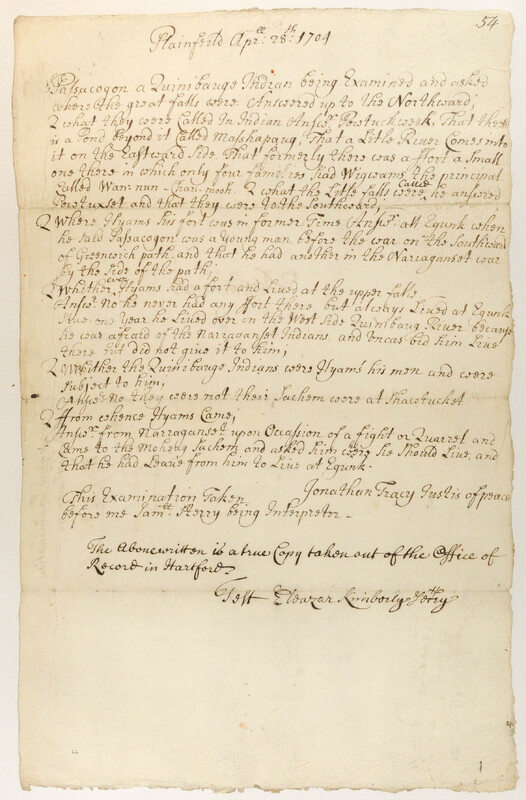 54
Plainfeild Aprll. 28th: 1704
Passacogon a Quinibauge Indian being Examined and asked
where the great falls were Answered up to the Northward;
Q what they were Called In Indian Answr. Powtuckweek. That there
is a Pond beyond it called Mashapaug, That a Litle River Comes into
it on the Eastward Side That formerly there was a ffort a small
one there in which only four families had Wigwams the principal
called Wan-nun-Chan-mook. Q what the Litle falls were Called he answred
Powtuxset and that they were to the Southward;
Q Where Hyams his fort was in former Time Answr. att Egunk when
he said Passacogon was a young man before the war on the Southward
of Greenwich path, and that he had another in the Narraganset war
by the Side of the path;
Q Whither ever Hyams had a fort and Lived at the upper falls
Answr. No he never had any ffort there but always Lived at Egunk
Save one year he Lived over in the West Side Quinibaug River because
he was afraid of the Narraganset Indians. and Uncas bid him Live
there but did not give it to him;
Q Whither the Quinibauge Indians were Hyams his men and were
subject to him;
Answr. No they were not their Sachem were at Shawtucket
Q ffrom whence Hyams Came;
Answr. from Narraganset upon Occassion of a fight or Quarrel and
Came to the Moheeg Sachem and asked him where he Should Live, and
that he had Leave from him to Live at Egunk.
This Examination Taken Jonathan Tracy Justis of peace
before me Samll. Sterry being Interpreter.
The Abovewritten is a true Copy taken out of the Office of
Record in Hartford.
Test Eleazar Kimberly Secretry